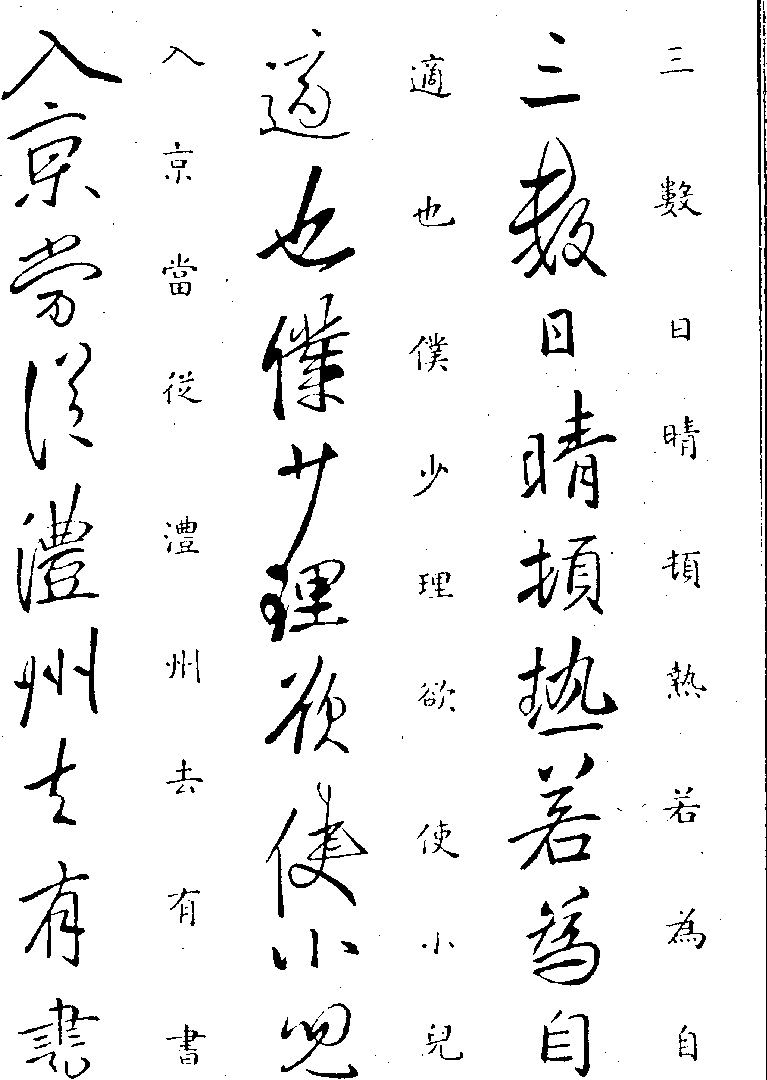 三數日晴頓熱若為自
三數日晴頓熱若為自
適也僕少理欲使小兒
適也僕少理欲使小兒
入京當從澧州去有書
入京當從澧州去有書